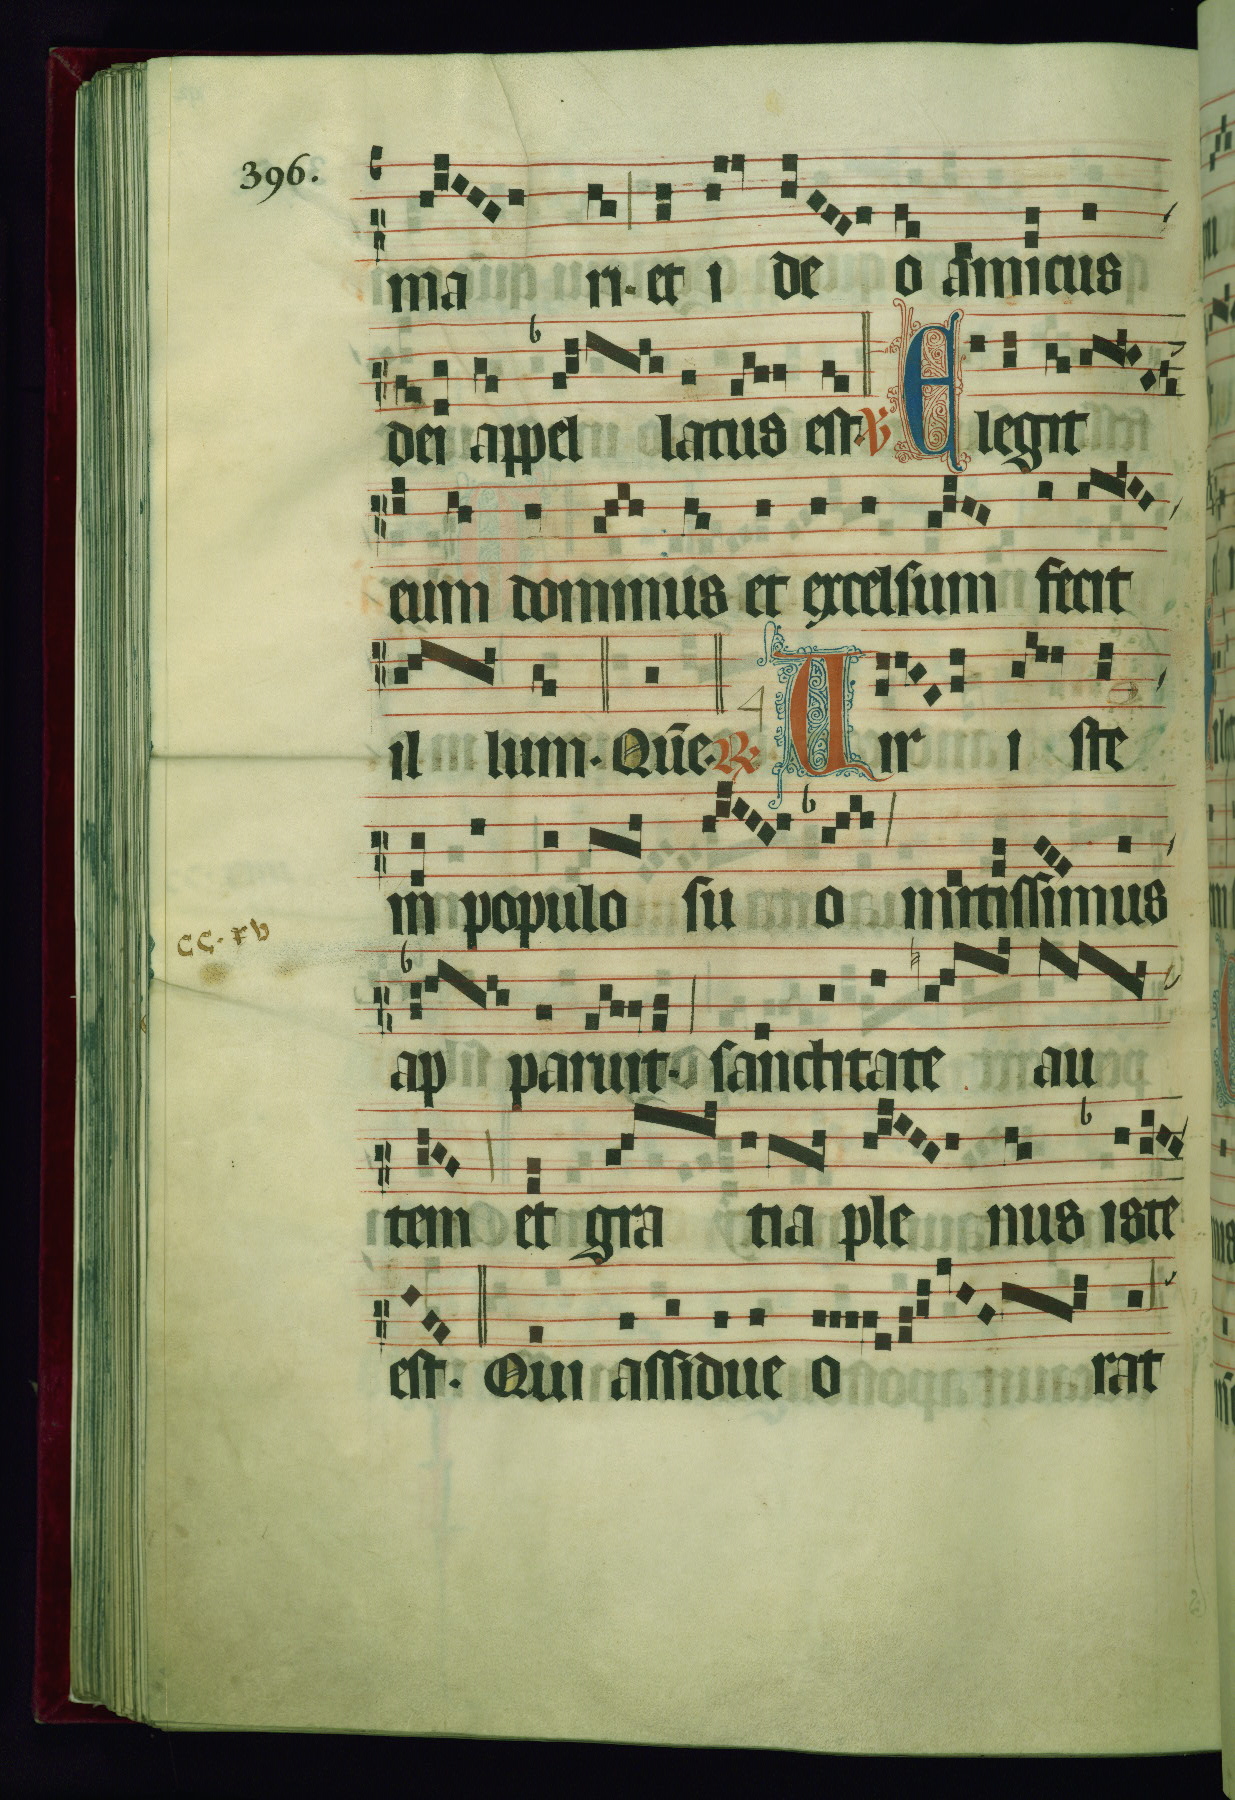 396.
ma ri. et i de o amicus
dei appel latus est. V Elegit
eum dominus et excelsum fecit
il lum. Que. R. Vir i ste
in populo su o mitissimus
cc. xv
ap paruit. sanctitate au
tem et gra tia ple nus iste
est. Qui assidue o rat